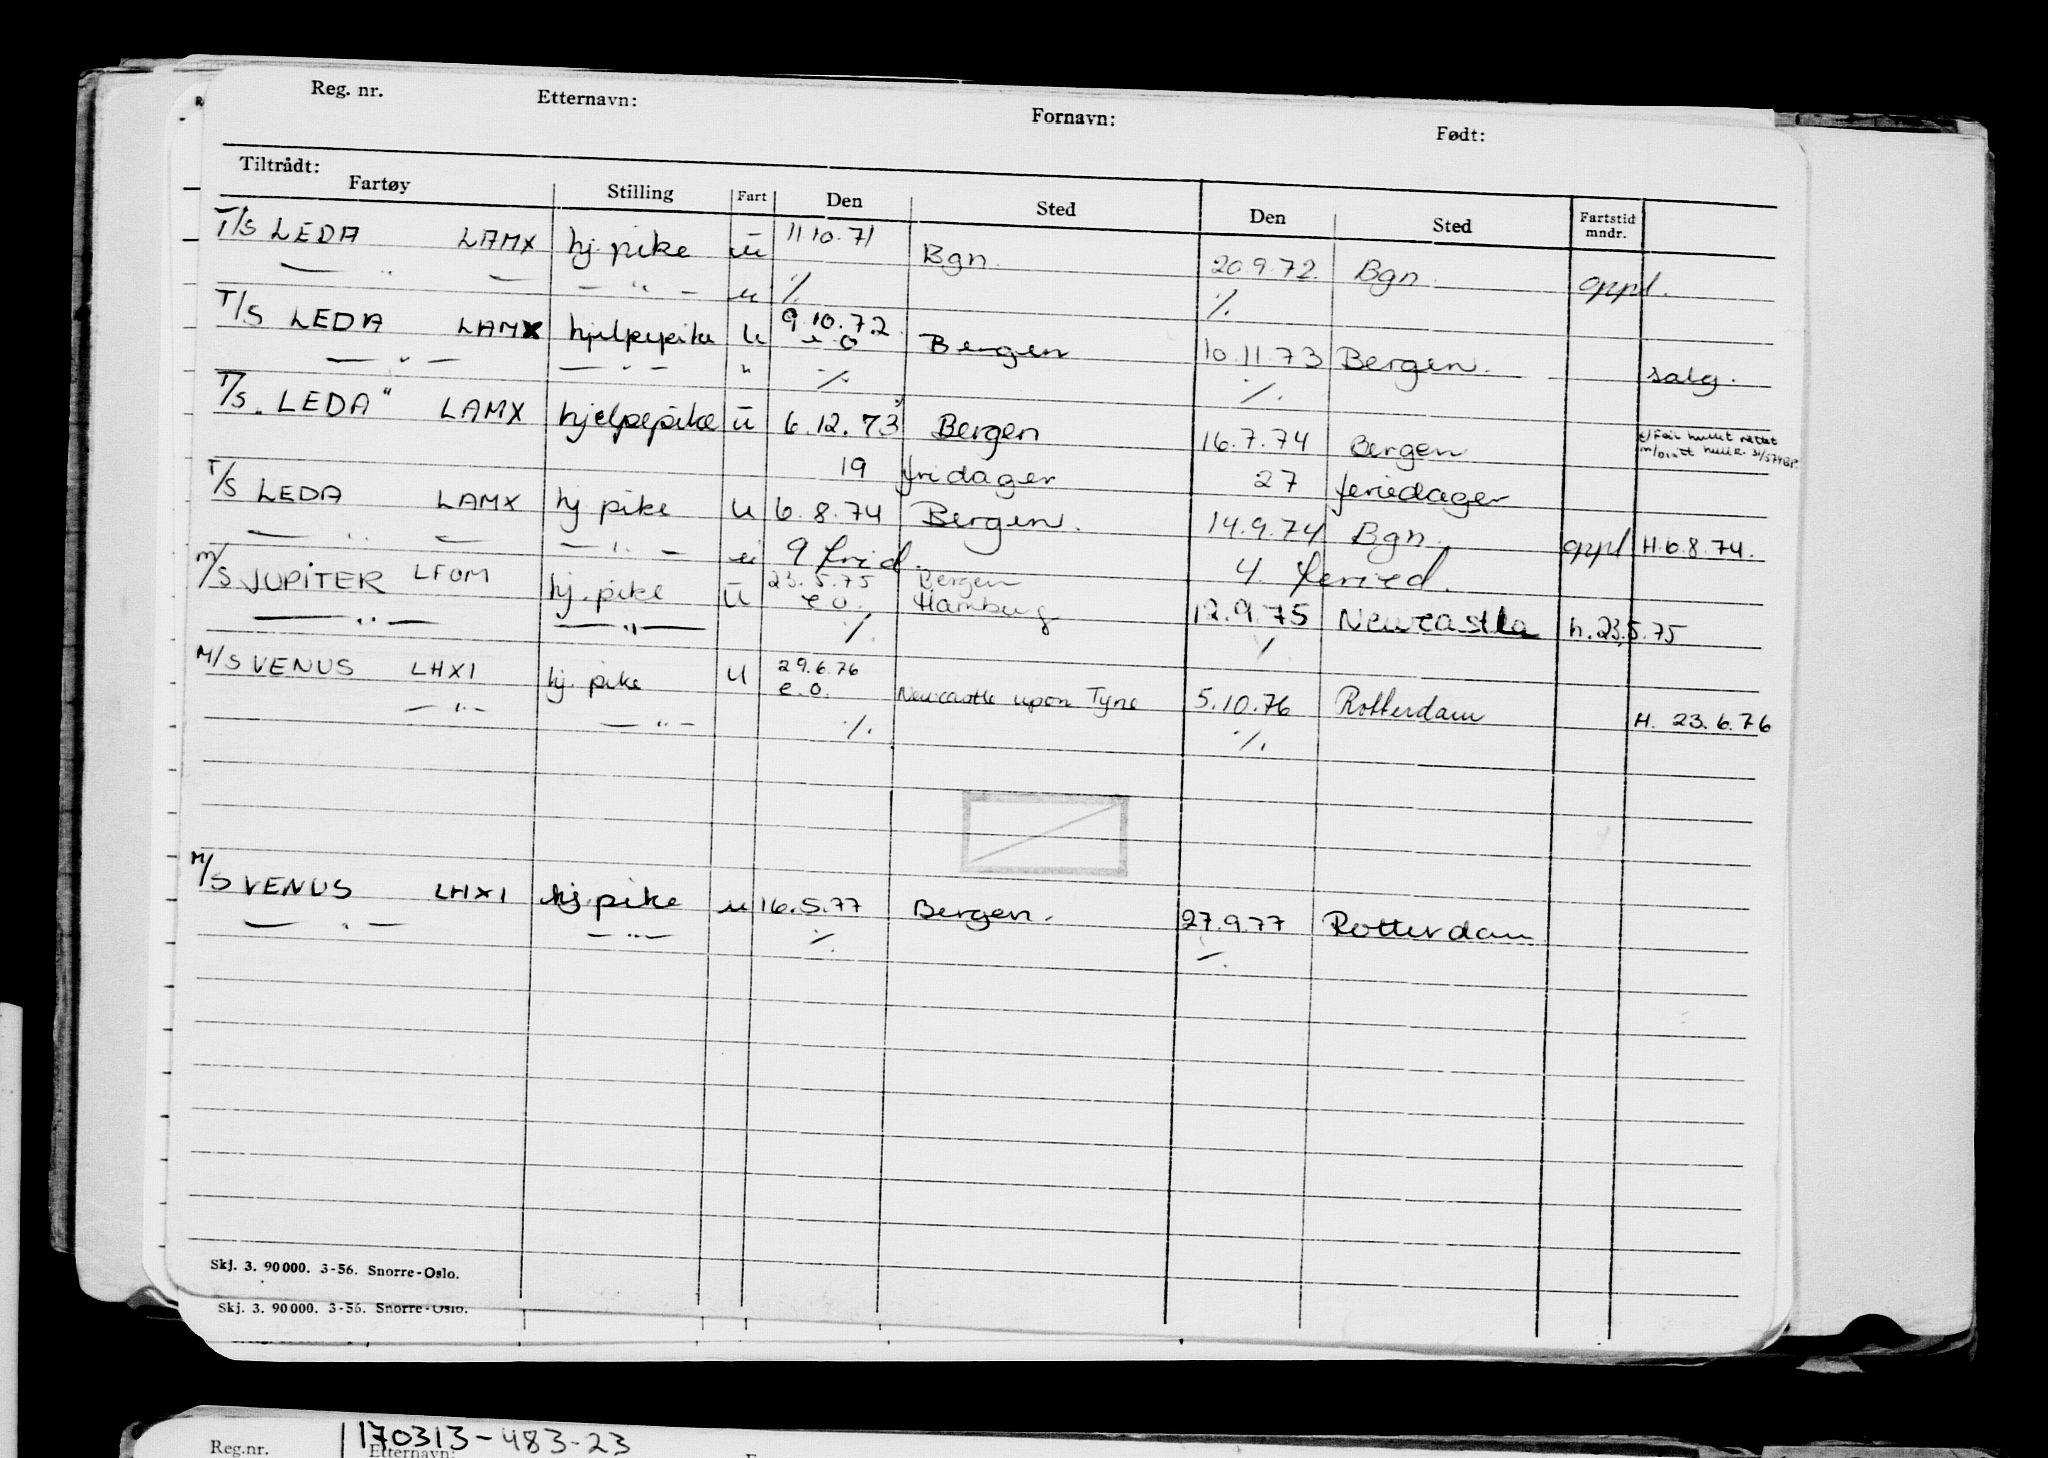 Reg. nr. Etternavn: Fornavn: Født:
Tiltrådt:
Fartøy Stilling Fart Den Sted Den Sted Fartstid mndr.
T/S LEDA LAMX hj. pike u 11.10.71 Bgn. 20.9.72. Bgn. oppl.
— " — — " — u % %
T/S LEDA LAMX hjelpepike u 9.10.72 e.o Bergen 10.11.73 Bergen. salg.
— " — — " — " % %
T/S "LEDA" LAMX hjelpepike u 6.12.73 Bergen 16.7.74 Bergen
19 fridager 27 feriedager
T/S LEDA LAMX hj. pike u 6.8.74 Bergen. 14.9.74 Bgn. oppl H.6.8.74.
— " — — " — u 9 frid. 4 feried.
M/S JUPITER LFOM hj. pike u 23.5.75 e.o. Bergen Hamburg 12.9.75 Newcastle h.23.5.75
— " — — " — % %
M/S VENUS LHXI hj. pike u 29.6.76 e.o. Newcastle upon Tyne 5.10.76 Rotterdam H. 23.6.76
— " — — " — % %
M/S VENUS LHXI hj. pike u 16.5.77 Bergen. 27.9.77 Rotterdam
— " — — " — % %
Skj. 3. 90 000. 3-56. Snorre-Oslo.
Skj. 3. 90 000. 3-56. Snorre-Oslo.
170313-483-23
Reg.nr. Etternavn: